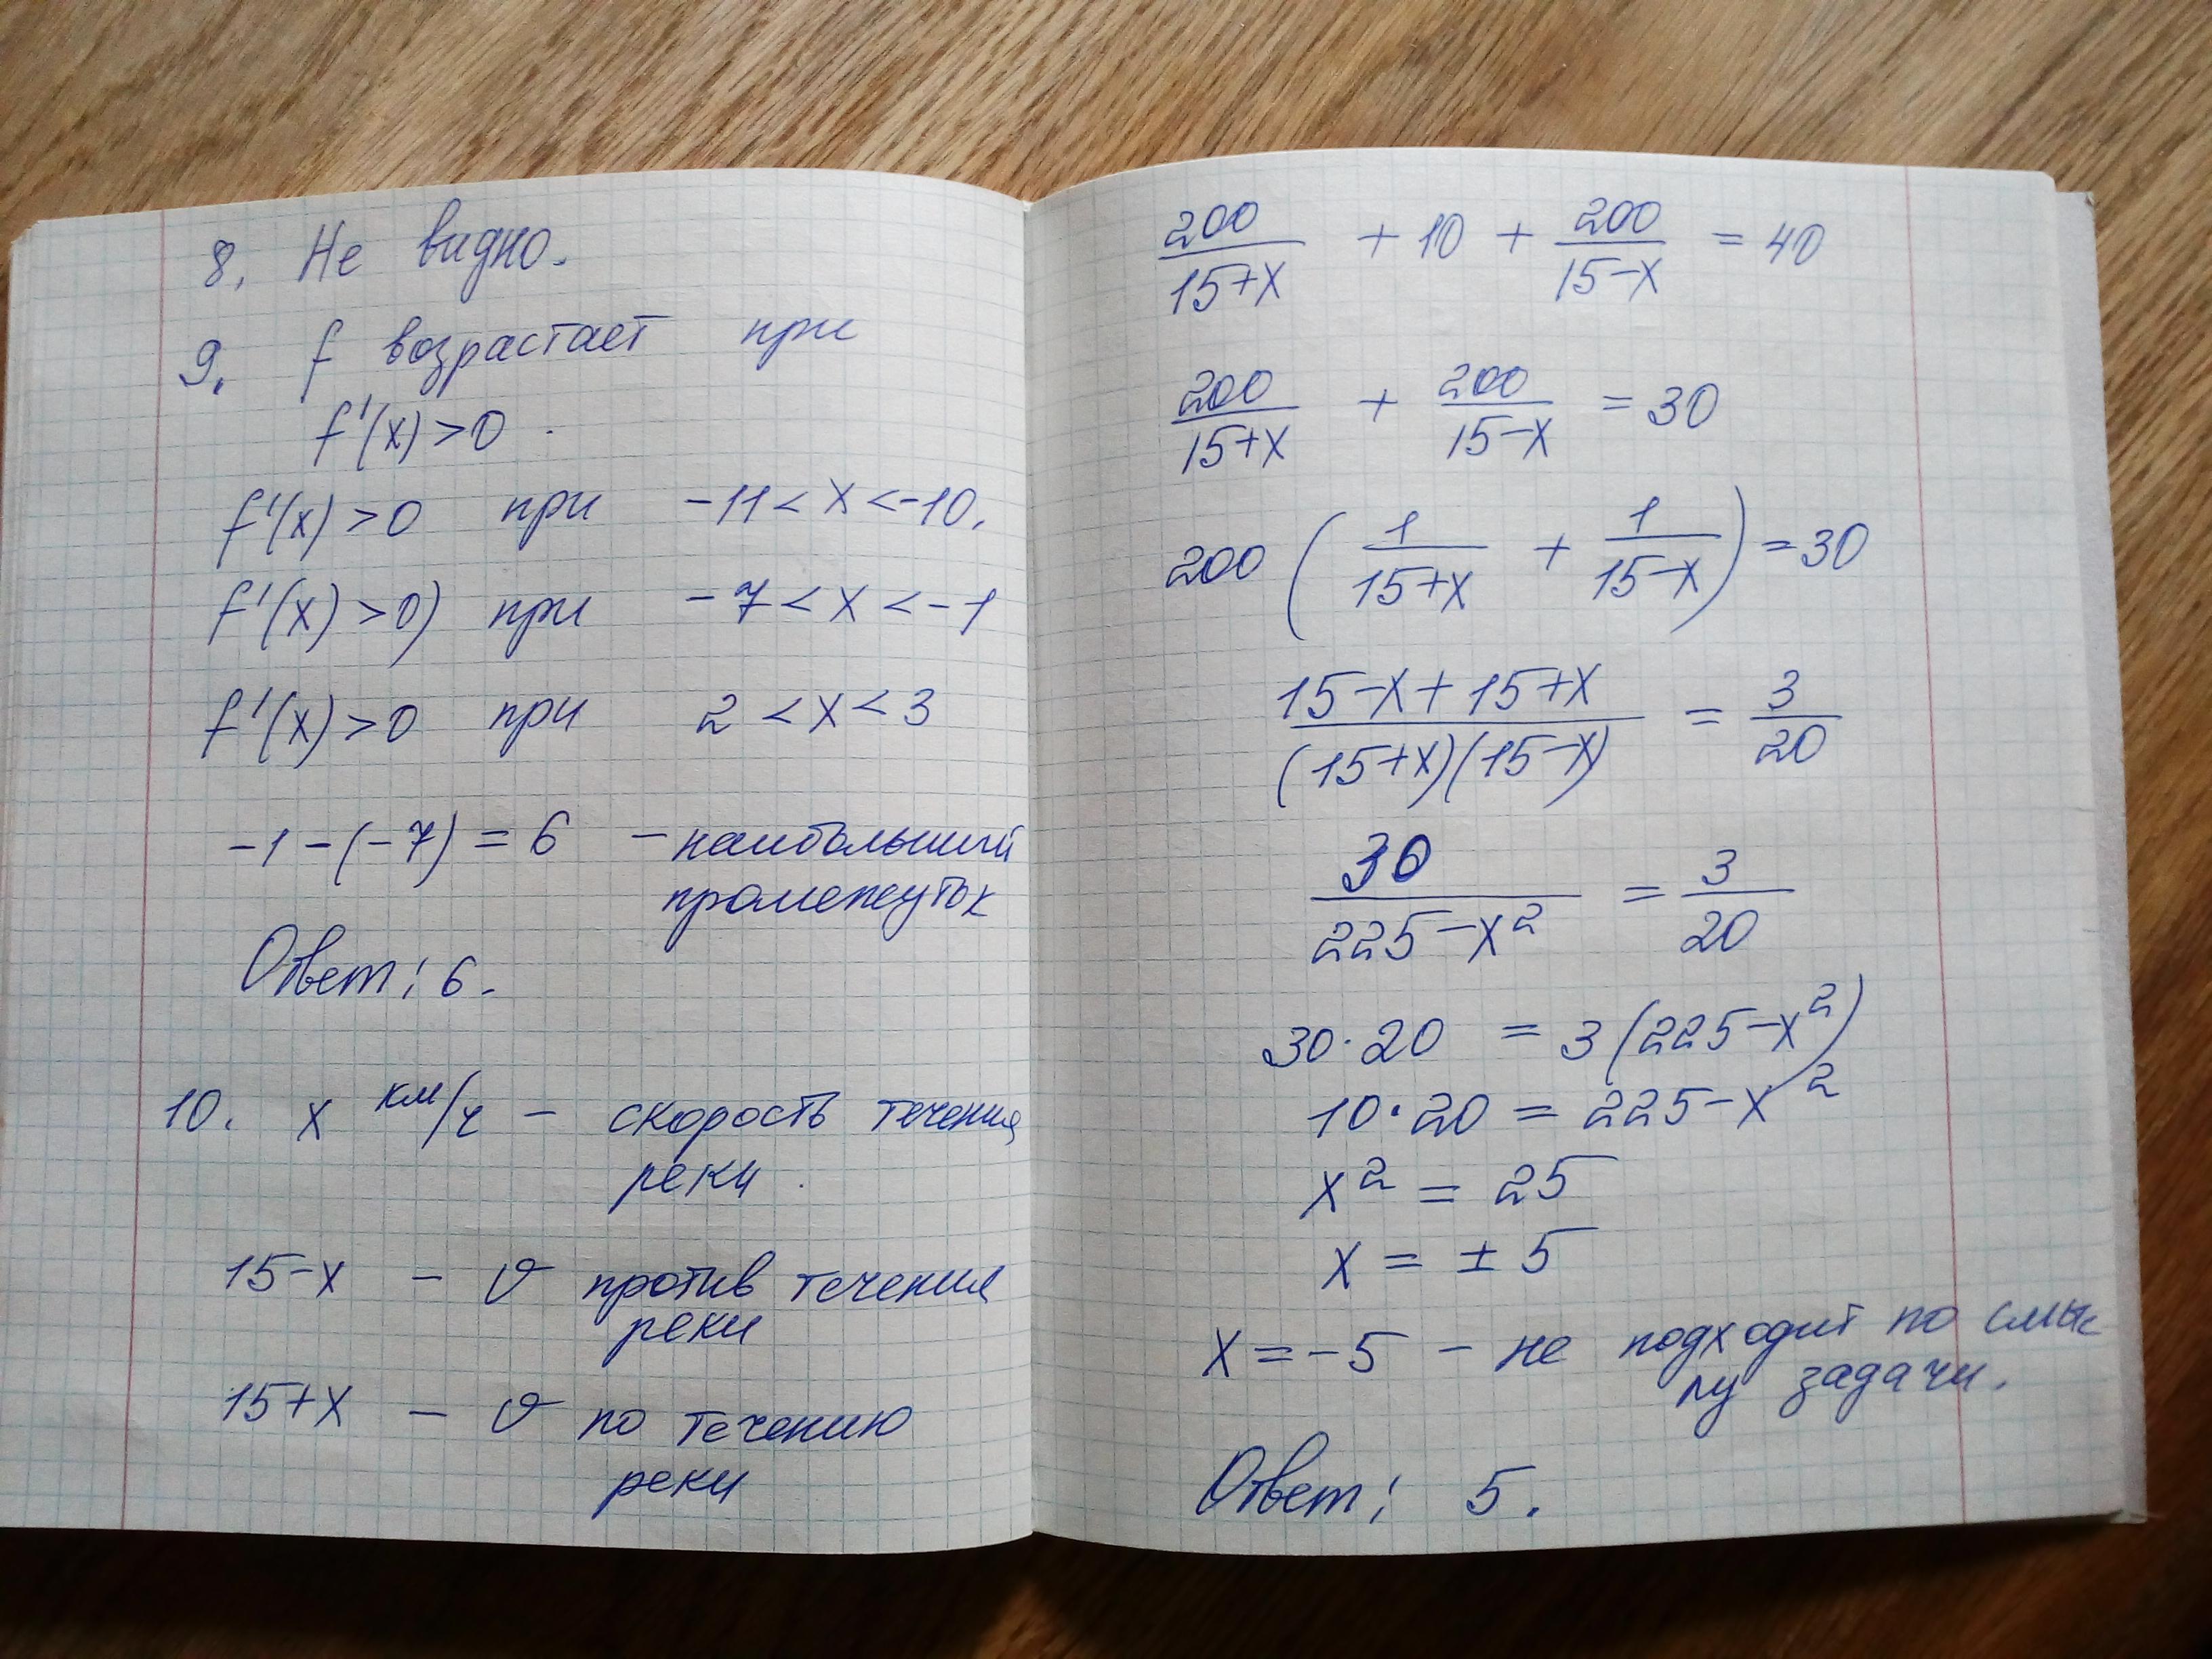 8. Не видно.
9. f возрастает при
f'(x) >0.
f'(x) >0 при -11 < x < -10.
f'(x) >0) при -7 < x < -1
f'(x) >0 при 2 < x < 3
-1 - (-7) = 6 - наибольший
промежуток
Ответ: 6.
10. x км/ч - скорость течения
реки.
15-x - v против течения
реки
15+x - v по течению
реки
200/(15+x) + 10 + 200/(15-x) = 40
200/(15+x) + 200/(15-x) = 30
200 (1/(15+x) + 1/(15-x)) = 30
(15-x+15+x)/((15+x)(15-x)) = 3/20
30/(225-x²) = 3/20
30·20 = 3(225-x²)
10·20 = 225-x²
x² = 25
x = ±5
x = -5 - не подходит по смыс
лу задачи.
Ответ: 5.